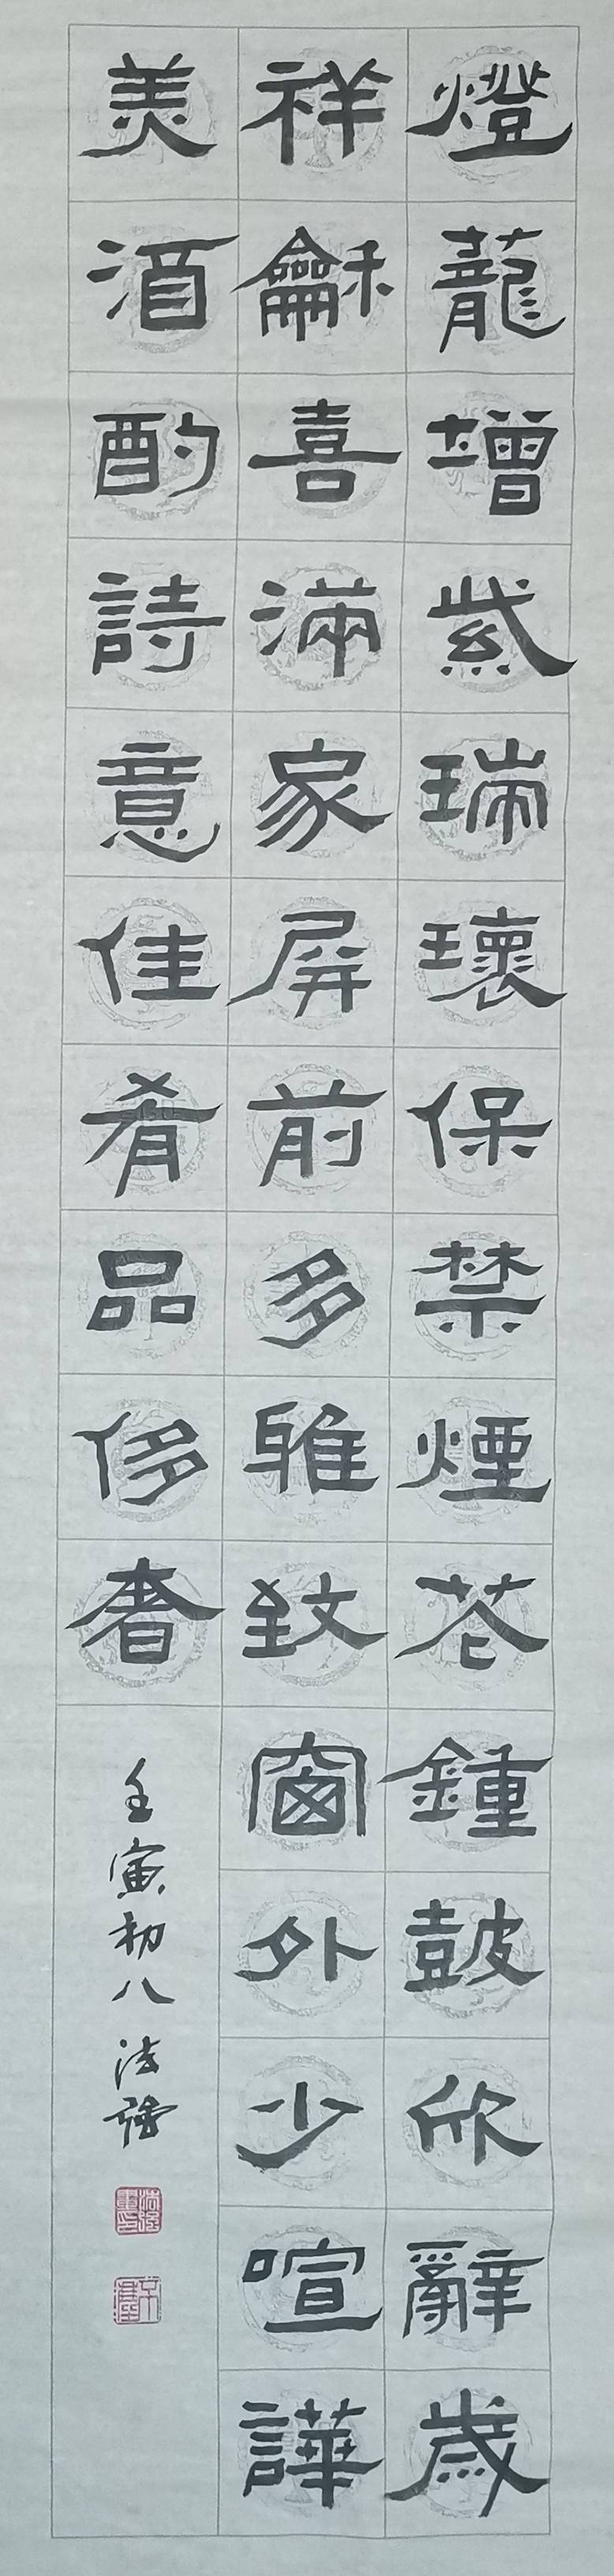 燈蘢增紫瑞環保禁煙花鍾鼓欣辭歲
祥龢喜滿家屏前多雅致窗外少喧譁
美酒酌詩意佳肴品侈奢
壬寅初八 法強